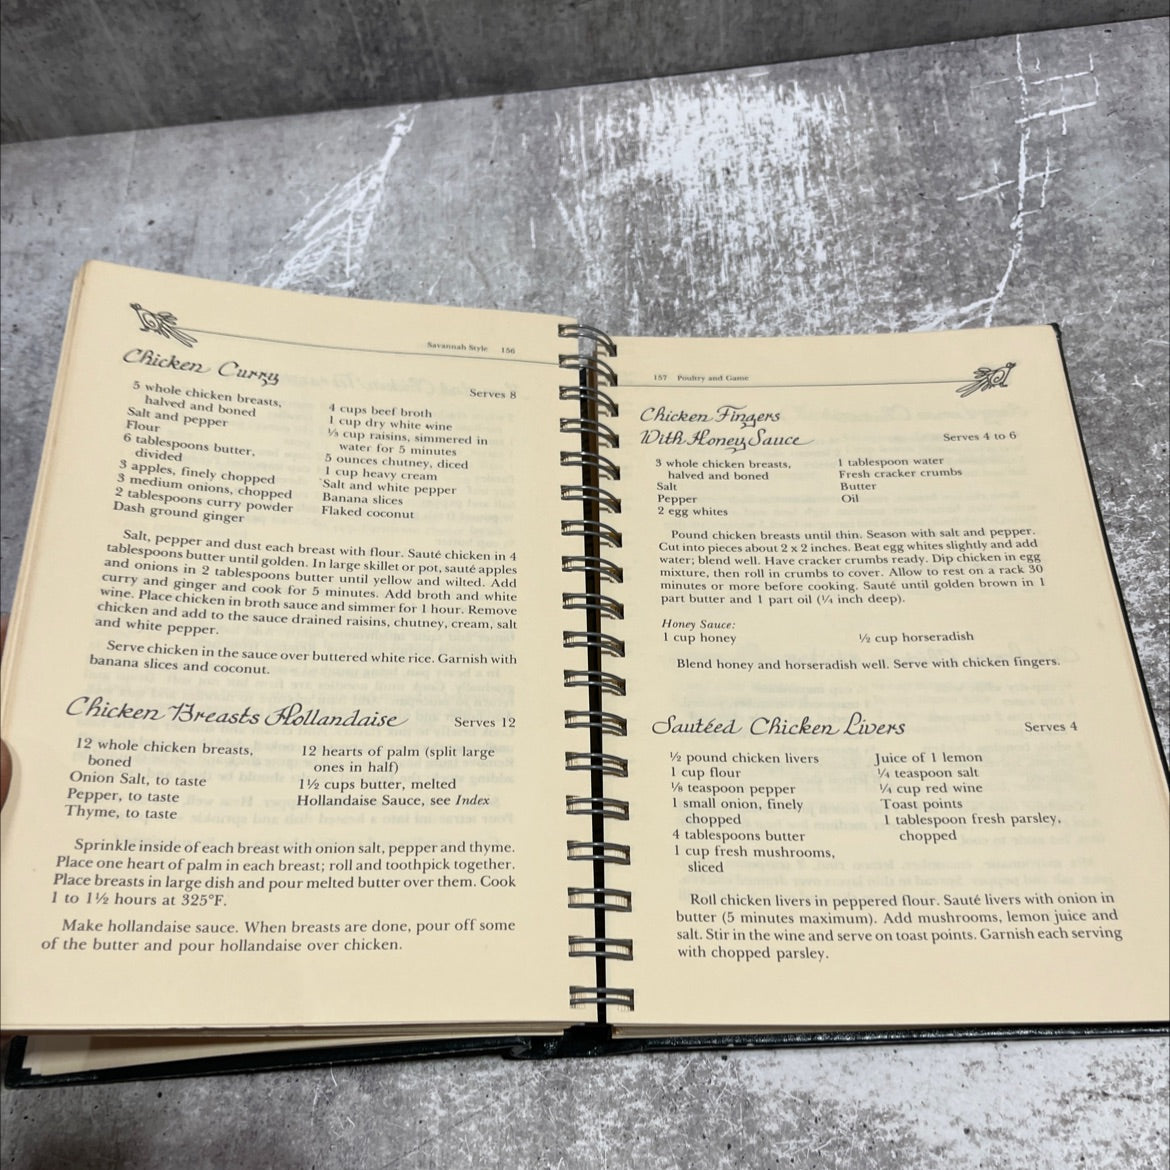 Savannah Style 156
Chicken Curry
Serves 8
5 whole chicken breasts,
halved and boned
Salt and pepper
Flour
6 tablespoons butter,
divided
3 apples, finely chopped
3 medium onions, chopped
2 tablespoons curry powder
Dash ground ginger
4 cups beef broth
1 cup dry white wine
⅓ cup raisins, simmered in
water for 5 minutes
5 ounces chutney, diced
1 cup heavy cream
Salt and white pepper
Banana slices
Flaked coconut
Salt, pepper and dust each breast with flour. Sauté chicken in 4
tablespoons butter until golden. In large skillet or pot, sauté apples
and onions in 2 tablespoons butter until yellow and wilted. Add
curry and ginger and cook for 5 minutes. Add broth and white
wine. Place chicken in broth sauce and simmer for 1 hour. Remove
chicken and add to the sauce drained raisins, chutney, cream, salt
and white pepper.
Serve chicken in the sauce over buttered white rice. Garnish with
banana slices and coconut.
Chicken Breasts Hollandaise
Serves 12
12 whole chicken breasts,
boned
Onion Salt, to taste
Pepper, to taste
Thyme, to taste
12 hearts of palm (split large
ones in half)
1½ cups butter, melted
Hollandaise Sauce, see Index
Sprinkle inside of each breast with onion salt, pepper and thyme.
Place one heart of palm in each breast; roll and toothpick together.
Place breasts in large dish and pour melted butter over them. Cook
1 to 1½ hours at 325°F.
Make hollandaise sauce. When breasts are done, pour off some
of the butter and pour hollandaise over chicken.
157 Poultry and Game
Chicken Fingers
With Honey Sauce
Serves 4 to 6
3 whole chicken breasts,
halved and boned
Salt
Pepper
2 egg whites
1 tablespoon water
Fresh cracker crumbs
Butter
Oil
Pound chicken breasts until thin. Season with salt and pepper.
Cut into pieces about 2 x 2 inches. Beat egg whites slightly and add
water; blend well. Have cracker crumbs ready. Dip chicken in egg
mixture, then roll in crumbs to cover. Allow to rest on a rack 30
minutes or more before cooking. Sauté until golden brown in 1
part butter and 1 part oil (¼ inch deep).
Honey Sauce:
1 cup honey
½ cup horseradish
Blend honey and horseradish well. Serve with chicken fingers.
Sautéed Chicken Livers
Serves 4
½ pound chicken livers
1 cup flour
⅛ teaspoon pepper
1 small onion, finely
chopped
4 tablespoons butter
1 cup fresh mushrooms,
sliced
Juice of 1 lemon
¼ teaspoon salt
¼ cup red wine
Toast points
1 tablespoon fresh parsley,
chopped
Roll chicken livers in peppered flour. Sauté livers with onion in
butter (5 minutes maximum). Add mushrooms, lemon juice and
salt. Stir in the wine and serve on toast points. Garnish each serving
with chopped parsley.